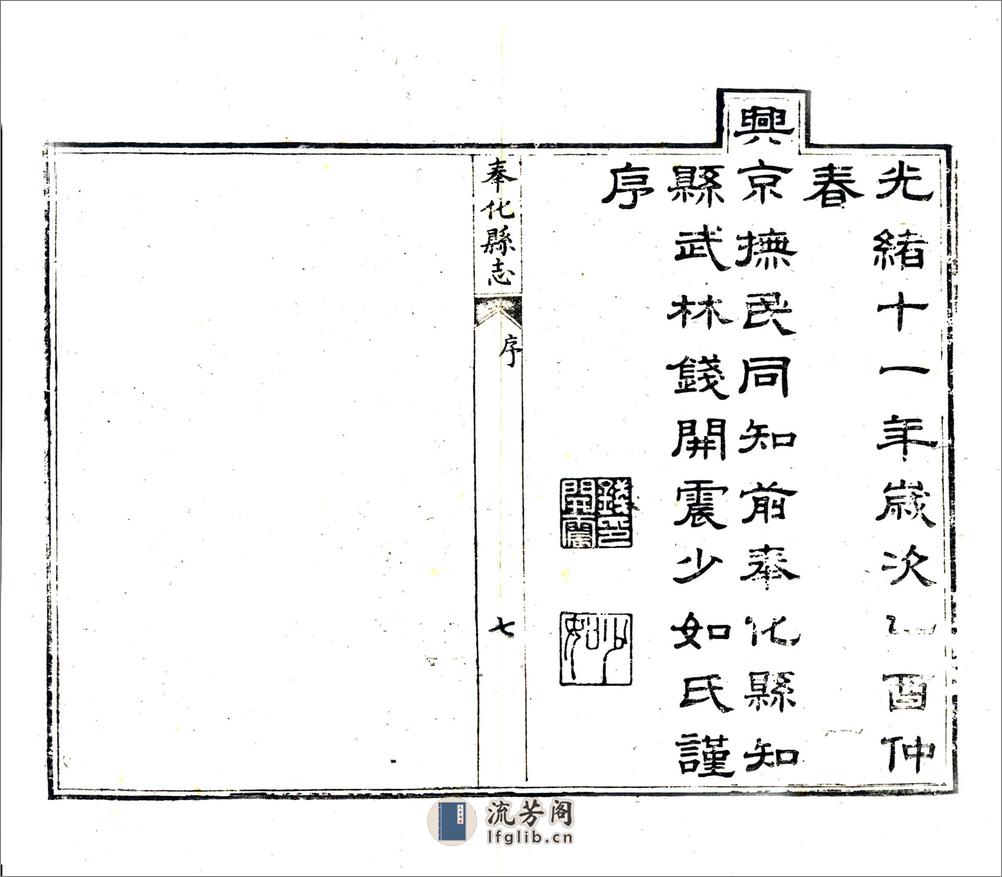 光緒十一年歲次乙酉仲
春
興京撫民同知前奉化縣知
縣武林錢開震少如氏謹
序
錢印開震
少如
奉化縣志
序
七
流芳阁
lfglib.cn